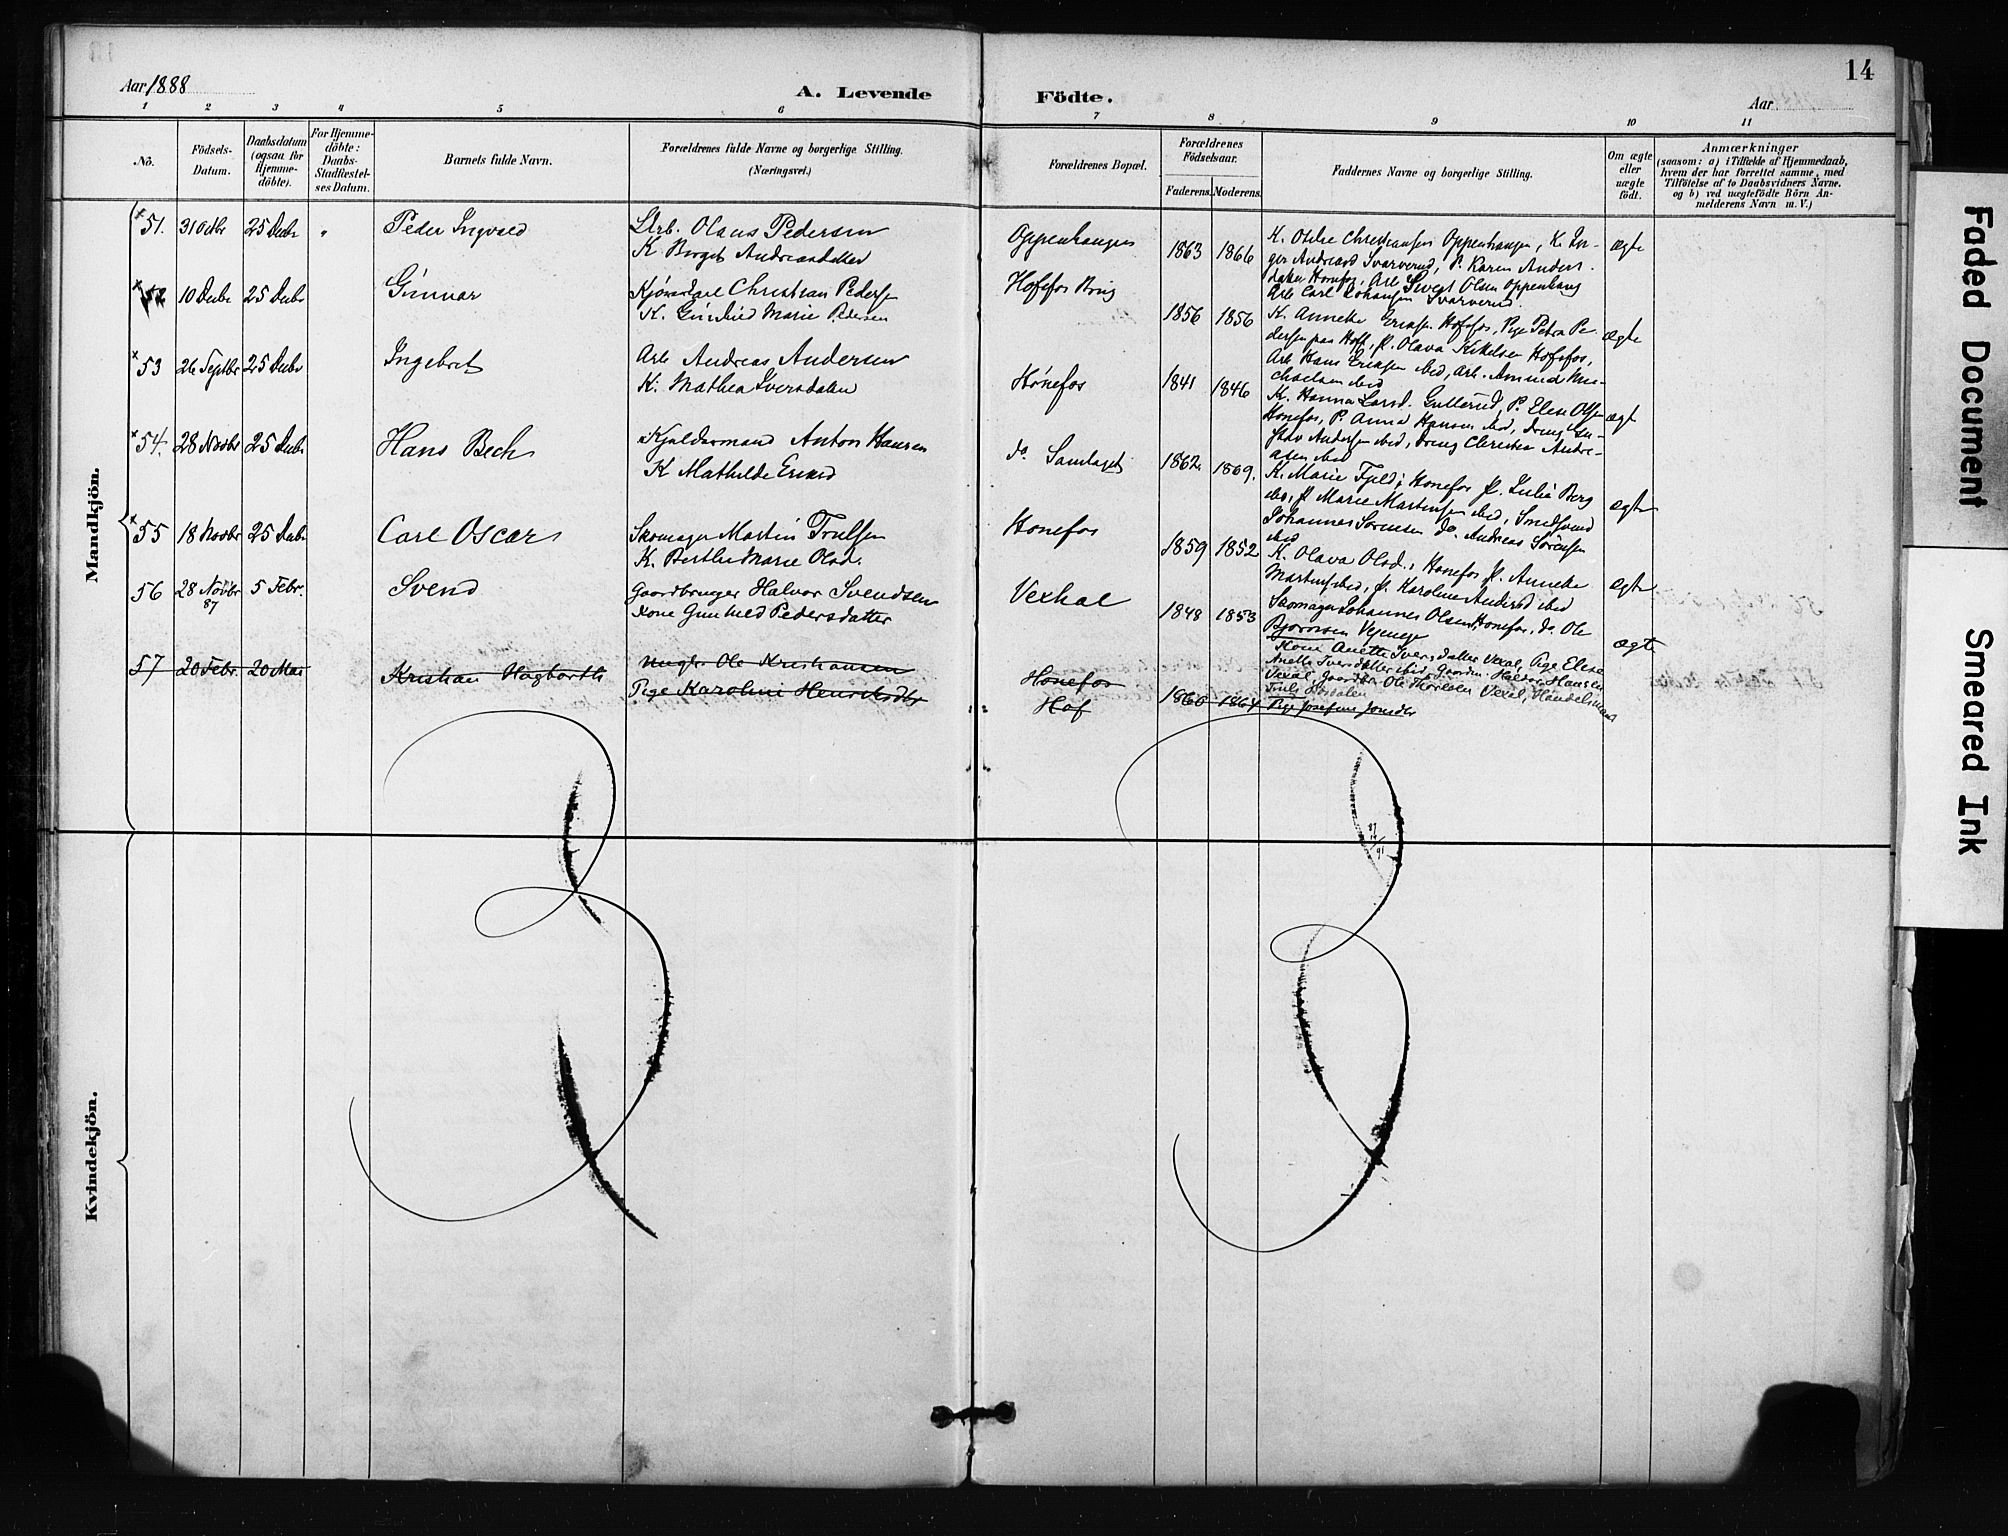 14
Aar 1888
A. Levende Födte.
Aar
1 2 3 4 5 6 7 8 9 10 11
No.
Födsels-Datum.
Daabsdatum (ogsaa for Hjemme-döbte).
For Hjemme-döbte: Daabs-Stadfæstel-ses Datum.
Barnets fulde Navn.
Forældrenes fulde Navne og borgerlige Stilling.
(Næringsvei.)
Forældrenes Bopæl.
Forældrenes Födselsaar.
Faderens. Moderens.
Faddernes Navne og borgerlige Stilling.
Om ægte eller uægte födt.
Anmærkninger
(saasom: a) i Tilfælde af Hjemmedaab,
hvem der har forrettet samme, med
Tilföielse af to Daabsvidners Navne.
og b) ved uægtefödte Börn An-
melderens Navn m. V.)
Mandkjön.
51. 31 Octbr 25 Decbr " Peder Ingvald Arb. Olaus Pedersen
K Borget Andreasdatter
Oppenhaugen 1863 1866 K. Otilie Christiansen Oppenhaugen, K. In-
ger Andreasd Svarverud, P. Karen Anders.
datter Hønefos, Arb Sivert Olsen Oppenhaug
Arb Carl Johansen Svarverud. ægte
52 10 Decbr 25 Decbr Gunnar Christian Pedersen
K. Gunhild Marie Pedersen
Hofsfos Brug 1856 1856 K. Anneke Eriksen Hofsfos, Pige Petra Pe-
dersen paa Hoff, P. Olava Kittelsen Hofsfos,
Arb Hans Eriksen ibid, Arb. Amund Mi-
chelsen ibid ægte
53 26 Septbr 25 Decbr Ingebret Arb Andreas Andersen
K. Mathea Iversdatter
Hønefos 1841 1846 K. Hanna Larsd. Gullerud, P. Elise Olsen
Hønefos, P. Anna Hansen ibid, Dreng Gu-
stav Andersen ibid, Dreng Christian Andre-
asen ibid ægt
54. 28 Novbr 25 Decbr Hans Bech Kjeldermand Anton Hansen
K Mathilde Eriksd
do Samlaget 1862. 1869. K. Marie Fjeld, Hønefos P. Julie Berg
ibid, P Marie Martinsen ibid, Smedsvend
Johannes Sørensen do Andreas Sørensen
ibid ægte
55 18 Novbr 25 Decbr Carl Oscar Skomager Martin Trulsen
K. Berthe Marie Olsd.
Hønefos 1859 1852 K. Olava Olsd., Hønefos P. Anneke
Martins ibid, P. Karoline Andersd ibid
Skomager Johannes Olsen Hønefos, do Ole
Bjørnsen Vejenge ægte
56 28 Novbr 87 5 Febr. Svend Gaardbruger Halvor Svendsen
Kone Gunhild Pedersdatter
Vexhal 1848 1853 Kone Anette Iversdatter Vexal, Pige Elise
Anette Iversdatter ibid, Gaardm. Halvor Hansen
Vexal, Gaardbr. Ole Thoresen Vexal, Handelsmand
Truls Hosdalen ægte
57 20 Febr. 20 Mai Kristian Hagbarth Ungkr. Ole Kristiansen
Pige Karoline Henriksdtr
Hønefos
Hof 1860 1864 Pige Josefine Jonsdtr
Kvindekjön.
Faded Document
Smeared Ink